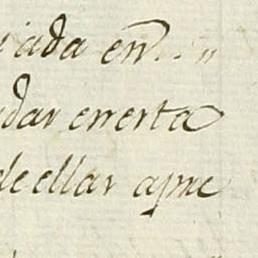 iada en̅.. "
dar en erta
de ellar apne